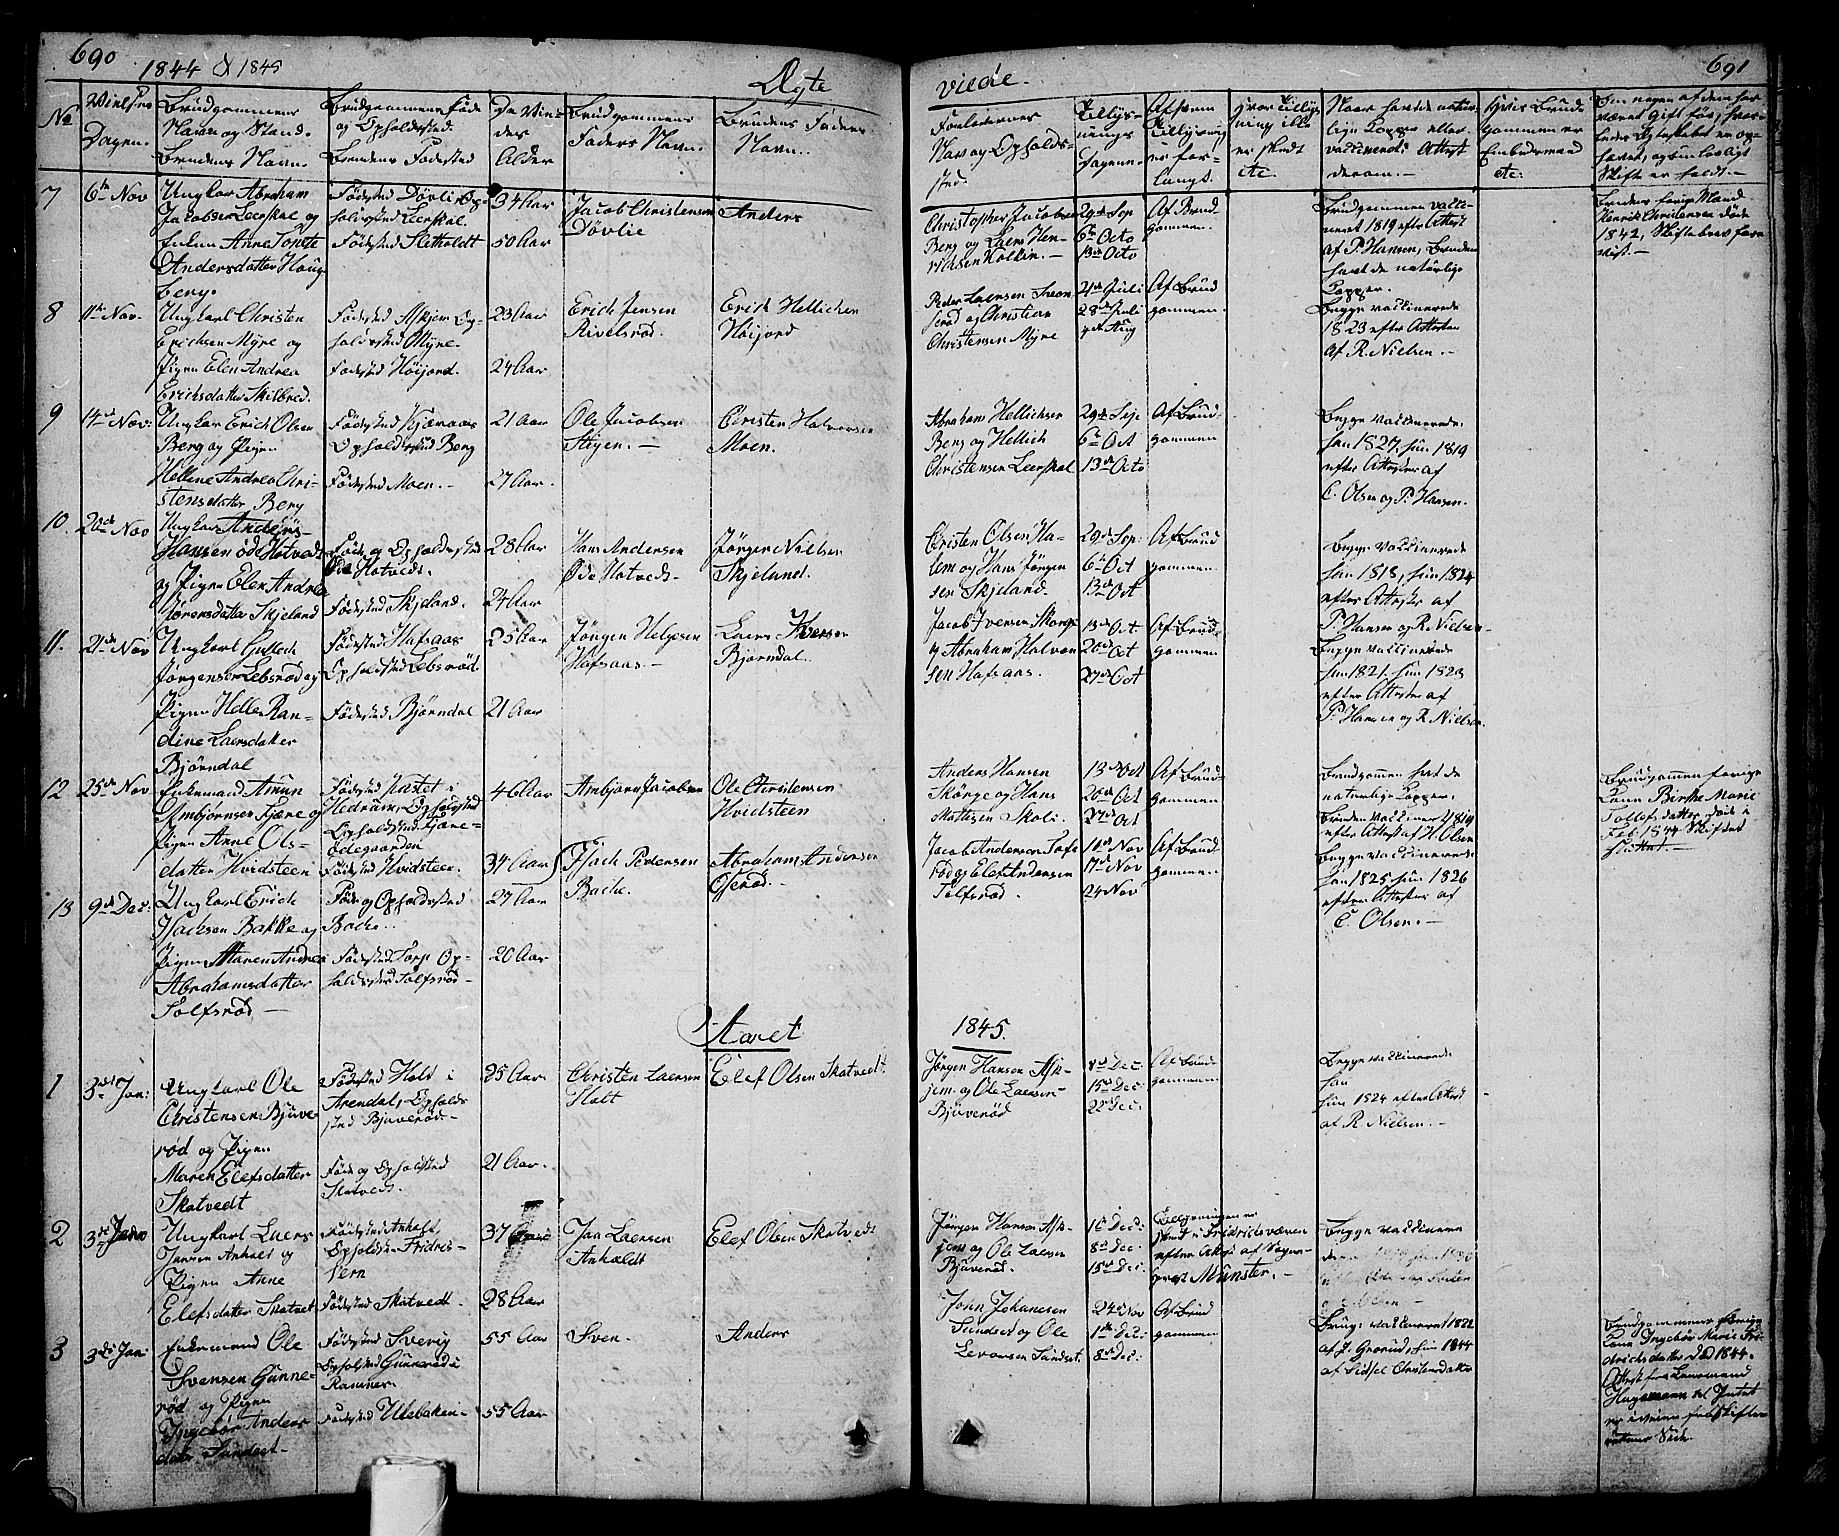 690
1844 & 1845
Ægte
viede.
691
No
Vielses
Dagen.
Brudgommens
Navn og Stand.
Brudens Navn.
Brudgommens Føde
og Opholdsted.
Brudens Fødested
De Vie-
des
Alder
Brudgommens
Faders Navn.
Brudens Faders
Navn.
Forlovernes
Navn og Opholds-
sted.
Tillys-
nings
Dagene.
Af hvem
Tillysning
er for-
langt.
Hvor Tillys-
ning ille
er skedt
etc.
Naar havde natur-
lige Kopper eller
vaccineret; Attest
derom.
Hvis Brud-
gommen er
Embedsmand
etc:
Om nogen af dem har
været gift før, hvor-
ledes Ægteskabet er op-
hævet, og om lovligt
Skifte er holdt.
7
6te Nov
Ungkar Abraham
Jacobsen Leerskal og
Enken Anne Torete
Andersdatter Houg
berg.
Fødested Døvlie Op-
holdssted Leerskal.
Fødested Sletholdt
34 Aar
50 Aar
Jacob Christensen
Døvlie
Anders
Christopher Jacobsen
Berg og Laers Hen-
richsen Holkin.
29de Sep
6te Octo
13de Octo
Af Brud
gommen.
Brudgommen vacci-
neret 1819 efter Attest
af P. Hansen, Bruden
havt de naturlige
Kopper.
Brudens forige Mand
Henrik Christensen døde
1842, Skiftebrev fore
vist.
8
11te Nov.
Ungkarl Christen
Erichsen Myre og
Pigen Elen Andrea
Erichsdatter Skilbred.
Fødested Askjem Op-
holdssted Myre.
Fødested Høijord.
23 Aar
24 Aar
Erich Jensen
Rivelsrød.
Erich Hellichsen
Høijord
Peder Laersen
og Christian
Christensen Myre
21de Juli
28de Juli
4de Aug
Af Brud
gommen.
Begge vaccinerede
1823 efter Attester
af R. Nielsen.
9
14de Nov:
Ungkar Erich Olsen
Berg og Pigen
Hellene Andrea Chri-
stensdatter Berg
Fødested Kjæraas
Opholdssted Berg
Fødested Moen.
21 Aar
27 Aar.
Ole Jacobsen
Stigen.
Christen Halvorsen
Moen.
Abraham Hellichsen
Berg og Hellich
Christensen Leerskal
29de Sep
6te Oct
13de Octo
Af Brud-
gommen
Begge vaccinerede,
han 1827, hun 1819
efter Attester af
C. Olsen og P. Hansen.
10
20de Nov
Ungkar Anders
Hansen øde Hotvedt
og Pigen Elen Andrea
Jørensdatter Skjeland
Føde og Opholdssted
Øde Hotvedt.
Fødested Skjeland.
28 Aar
24 Aar
Hans Andersen
Øde Hotvedt
Jørgen Nielsen
Skjeland.
Christen Olsen Ha-
lem og Hans Jørgen
sen Skjeland.
29de Sep:
6te Oct
13de Oct
Af Brud
gommen.
Begge vaccinerede
han 1818, hun 1824
efter Attester af
P. Hansen og R. Nielsen
11.
21de Nov
Ungkarl Gullich
Jørgensen Lebsrød og
Pigen Helle Ran-
dine Laersdatter
Bjørndal
Fødested Hafsaas
Opholdssted Lebsrød
Fødested Bjørndal
25 Aar
21 Aar
Jørgen Helgesen
Hafsaas
Laers Iversen
Bjørndal.
Jacob Iversen Skorge
og Abraham Halvor
sen Hafsaas.
13de Oct
20de Oct
27de Oct
Af Brud-
gommen
Begge vaccinerede
han 1821, hun 1823
efter Attester af
P. Hansen og R. Nielsen
12
25de Nov
Enkemand Amun
Ambjørnsen Fjære og
Pigen Anne Ols-
datter Hvidsteen
Fødested Kastet i
Hedrum, Opholdssted
Fjære-
ødegaarden
Fødested Hvidsteen
46 Aar
34 Aar
Ambjørn Jacobsen
Ole Christensen
Hvidsteen
Anders Hansen
Skorge og Hans
Mathisen Skoli
13de Oct
20de Oct
27de Oct
Af Brud-
gommen
Brudgommen havt de
naturlige Kopper,
Bruden vaccineret 1819
efter Attest af H. Olsen
Brudgommens forrige
Kone Birthe Marie
Tollefsdatter døde i
Feb 1844 Skiftet
sluttet.
13
9de Dec:
Ungkarl Erich
Isachsen Bakke og
Pigen Maren Andrea
Abrahamsdatter
Tolfsrød
Føde og Opholdssted
Bache.
Fødested Torp Op-
holdssted Tolfsrød
27 Aar
20 Aar
Isach Pedersen
Bache.
Abraham Andersen
Jacob Andersen Tofs
rød og Elef Andersen
Tolfsrød.
10de Nov
17de Nov
24 Nov
Af Brud-
gommen.
Begge vaccinerede
han 1825 hun 1826
efter Attester af
C. Olsen.
Aaret
1845.
1
3de Jan:
Ungkarl Ole
Christensen Bjüve-
rød og Pigen
Maren Elefsdatter
Skatvedt
Fødested Holt i
Arendal, Opholds
sted Bjuverød
Føde og Opholdssted
Skatvedt.
25 Aar
21 Aar.
Christen Laersen
Holt
Elef Olsen Skatvedt.
Jørgen Hansen Ask-
jem og Ole Laersen
Bjüverød
8de Dec:
15de Dec:
22de Dec:
Af Brud-
gommen.
Begge vaccinerede
han
hun 1824 efter Attest
af R. Nielsen.
2
3de Jan
Ungkarl Laers
Jansen Anholt og
Pigen Anne
Elefsdatter Skatvet
Fødested Anholt,
Opholdssted Fridrics-
vern
Fødested Skatvedt
37 Aar
28 Aar
Jan Laersen
Anholdt
Elef Olsen Skatvedt
Jørgen Hansen Ask-
jem og Ole Laersen
Bjüverød.
1te Dec:
8de Dec.
15de Dec:
Tillysningen er
skeed i Fridricsværn
efter Attest af Sogne-
præst Münster.
Begge vaccinere
3
3de Jan:
Enkemand Ole
Svensen Günne-
rød og Pigen
Ingebør Anders
datr. Sündset
Fødested Sverig
Opholdssted Günnerød i
Ramnes.
Fødested Ulebakken
55 Aar
55 Aar
Sven
Anders
Joren Johanesen
Sundset og Ole
Levorsen Sündset.
24de Nov
1te Dec:
8de Dec:
Af Brud
gommen
Brudg: vaccineret 1822
af J. Grorud, hun 1844
af Sidsel Christensdatter
Brudgommens forrige
Kone Ingebør Marie Fri-
drichsdatter død 1844.
Attest fra Lensmand
Hagemann